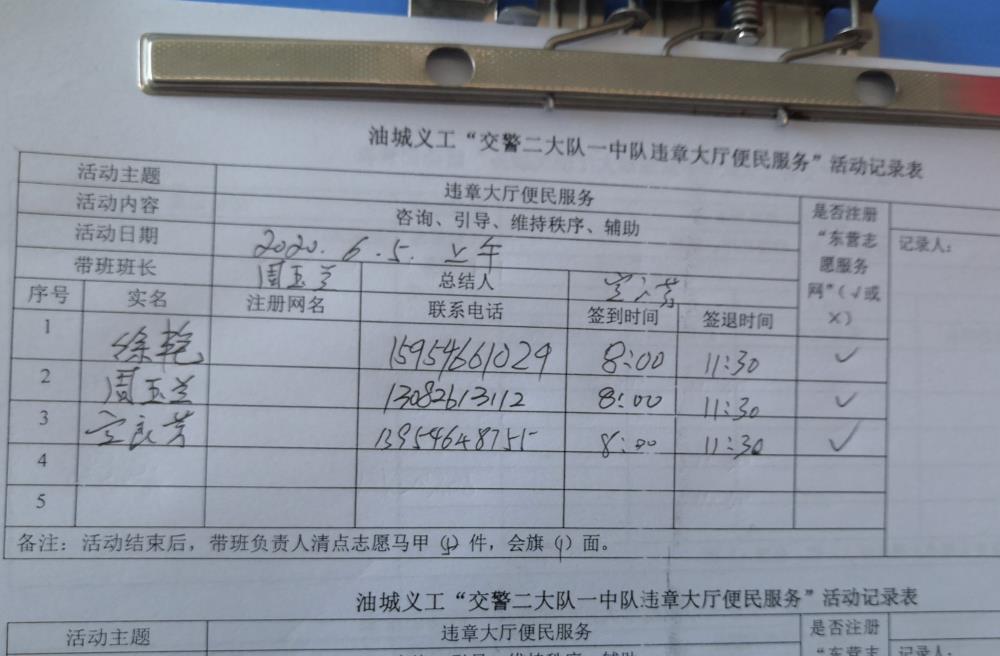 油城义工“交警二大队一中队违章大厅便民服务”活动记录表
活动主题 违章大厅便民服务 是否注册“东营志愿服务网”(√或×) 记录人：
活动内容 咨询、引导、维持秩序、辅助
活动日期 2020.6.5. 上午
带班班长 周玉兰 总结人
序号 实名 注册网名 联系电话 签到时间 签退时间
1 徐艳 15954661029 8:00 11:30 √
2 周玉兰 13082613112 8:00 11:30 √
3 13954648755 8:00 11:30 √
4
5
备注：活动结束后，带班负责人清点志愿马甲( )件，会旗(1)面。
油城义工“交警二大队一中队违章大厅便民服务”活动记录表
活动主题 违章大厅便民服务 是否注册
“东营志 记录人：